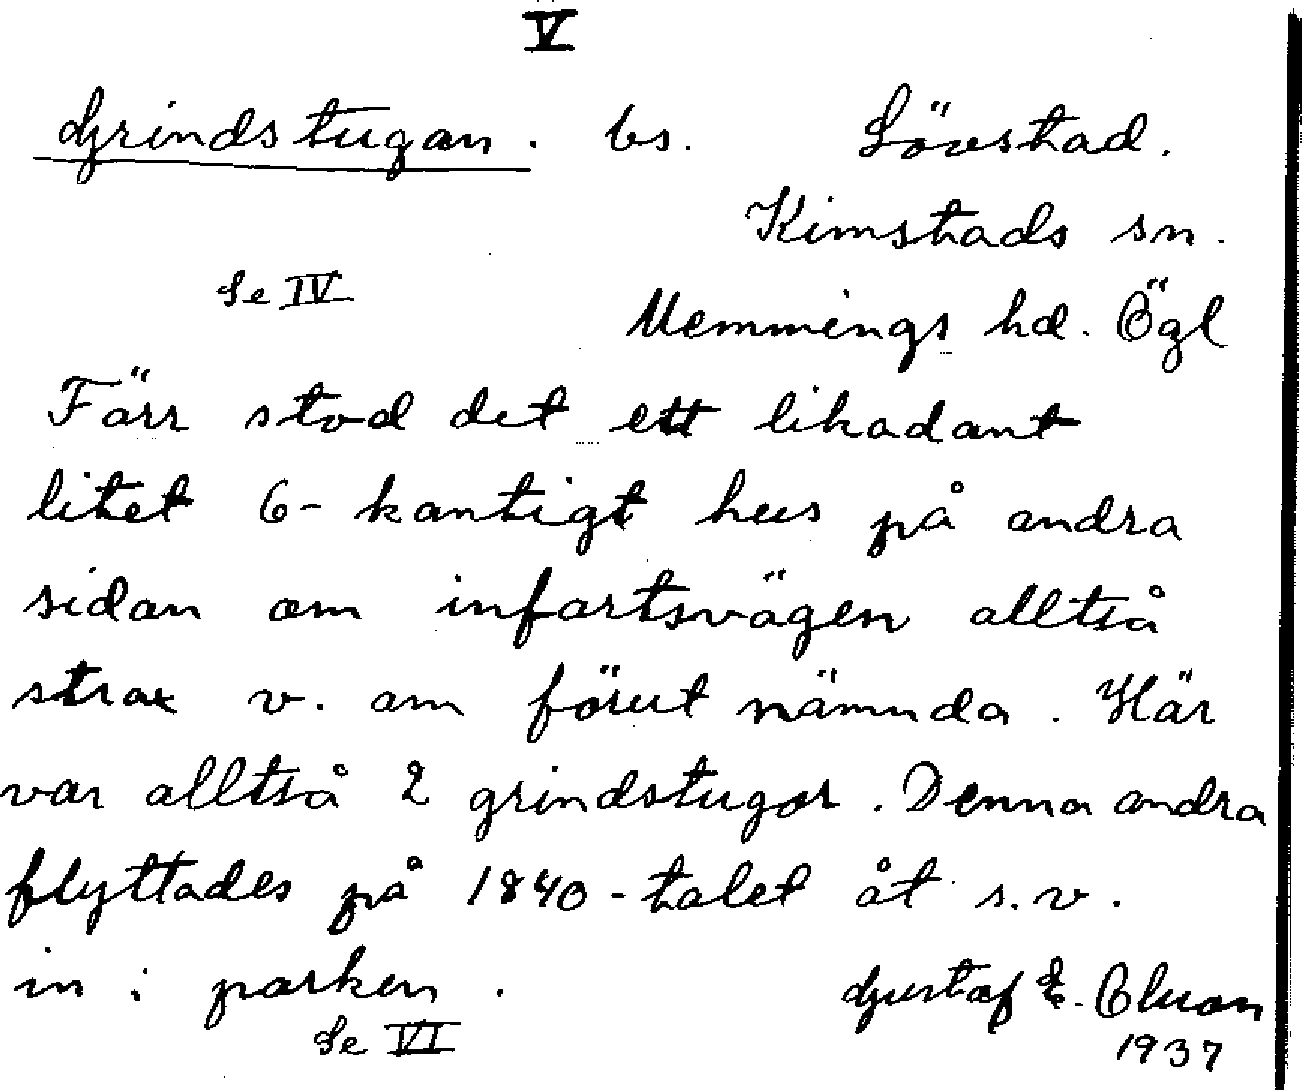 V
Grindstugan. bs. Lövstad.
Kimstads sn.
Se IV
Memmings hd. Ögl
Förr stod det ett likadant
litet 6-kantigt hus på andra
sidan om infartsvägen alltså
strax v. om förut nämnda. Här
var alltså 2 grindstugor. Denna andra
flyttades på 1840-talet åt s.v.
in i parken.
Gustaf E.
Se VI
1937